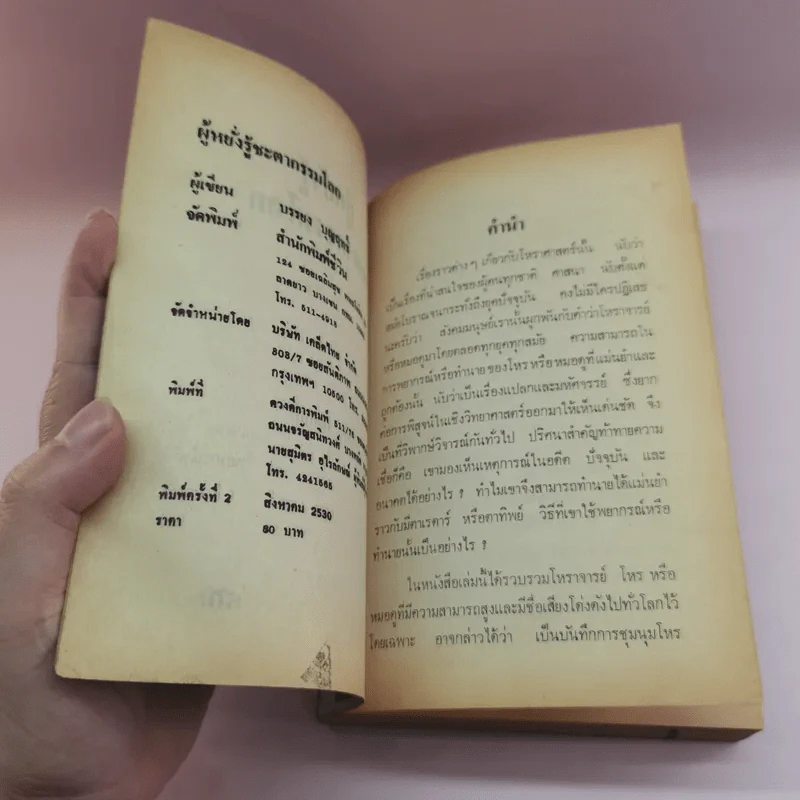 ผู้หยั่งรู้ชะตากรรมโลก
ผู้เขียน บรรยง บุญฤทธิ์
จัดพิมพ์ สำนักพิมพ์ชีวิน
124 ซอยเฉลิมสุข
ลาดยาว บางเขน
โทร. 511-4913
จัดจำหน่ายโดย บริษัท เคล็ดไทย จำกัด
308/7 ซอยสันติภาพ
กรุงเทพฯ 10500 โทร.
พิมพ์ที่ ดวงดีการพิมพ์ 511/76
ถนนจรัญสนิทวงศ์
นายสุมิตร อุไรลักษณ์
โทร. 4241565
พิมพ์ครั้งที่ 2 สิงหาคม 2530
ราคา 60 บาท
คำนำ
เรื่องราวต่าง ๆ เกี่ยวกับโหราศาสตร์นั้น นับว่า
เป็นเรื่องที่น่าสนใจของผู้คนทุกชาติ ศาสนา นับตั้งแต่
สมัยโบราณจนกระทั่งถึงยุคปัจจุบัน คงไม่มีใครปฏิเสธ
นะครับว่า สังคมมนุษย์เรานั้นผูกพันกับคำว่าโหราจารย์
หรือหมอดูมาโดยตลอดทุกยุคทุกสมัย ความสามารถใน
การพยากรณ์หรือทำนายของโหร หรือหมอดูที่แม่นยำและ
ถูกต้องนั้น นับว่าเป็นเรื่องแปลกและมหัศจรรย์ ซึ่งยาก
ต่อการพิสูจน์ในเชิงวิทยาศาสตร์ออกมาให้เห็นเด่นชัด จึง
เป็นที่วิพากษ์วิจารณ์กันทั่วไป ปริศนาสำคัญท้าทายความ
เชื่อก็คือ เขามองเห็นเหตุการณ์ในอดีต ปัจจุบัน และ
อนาคตได้อย่างไร ? ทำไมเขาจึงสามารถทำนายได้แม่นยำ
ราวกับมีตาเรดาร์ หรือตาทิพย์ วิธีที่เขาใช้พยากรณ์หรือ
ทำนายนั้นเป็นอย่างไร ?
ในหนังสือเล่มนี้ได้รวบรวมโหราจารย์ โหร หรือ
หมอดูที่มีความสามารถสูงและมีชื่อเสียงโด่งดังไปทั่วโลกไว้
โดยเฉพาะ อาจกล่าวได้ว่า เป็นบันทึกการชุมนุมโหร